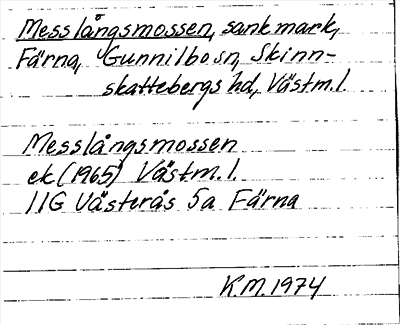 Messlångsmossen, sank mark,
Färna, Gunnilbo sn, Skinn-
skattebergs hd, Västm. l.
Messlångsmossen
ek (1965) Västm. l.
11G Västerås 5a Färna
K.M. 1974